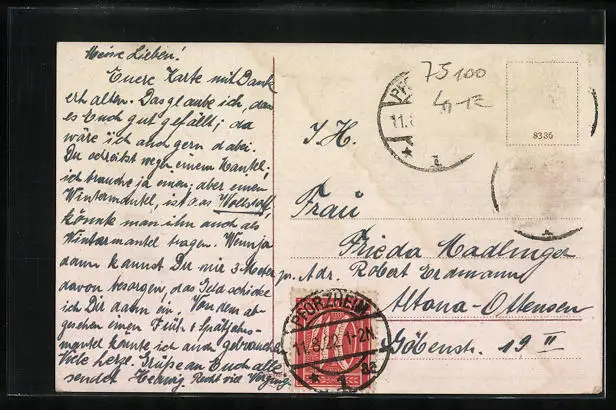 Meine Lieben!
Euere Karte mit Dank
erhalten. Das glaube ich, dass
es Euch gut gefällt; da
wäre ich auch gern dabei.
Du schreibst wegen einem Mantel;
ich brauche ja einen; aber einen
Wintermantel, ist das Wollstoff,
könnte man ihn auch als
Wintermantel tragen. Wenn ja
dann kannst Du mir 3 Meter
davon besorgen, das Geld schicke
ich Dir dann ein. Von dem ab-
gesehen einen Früh- & Spätjahrs-
mantel könnte ich auch gebrauchen
Viele herzl. Grüße an Euch alle
sendet Hedwig Recht viel Vergnüg.
75100
11.8
8386
I. H.
Frau
Frieda Madlinger
pr. Adr. Robert Erdmann
Altona-Ottensen
Göbenstr. 19 II
PFORZHEIM
11.8.22. 1-2N.
* 1